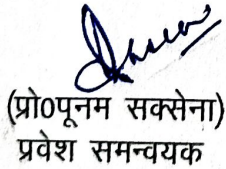 (प्रो0पूनम सक्सेना)
प्रवेश समन्वयक